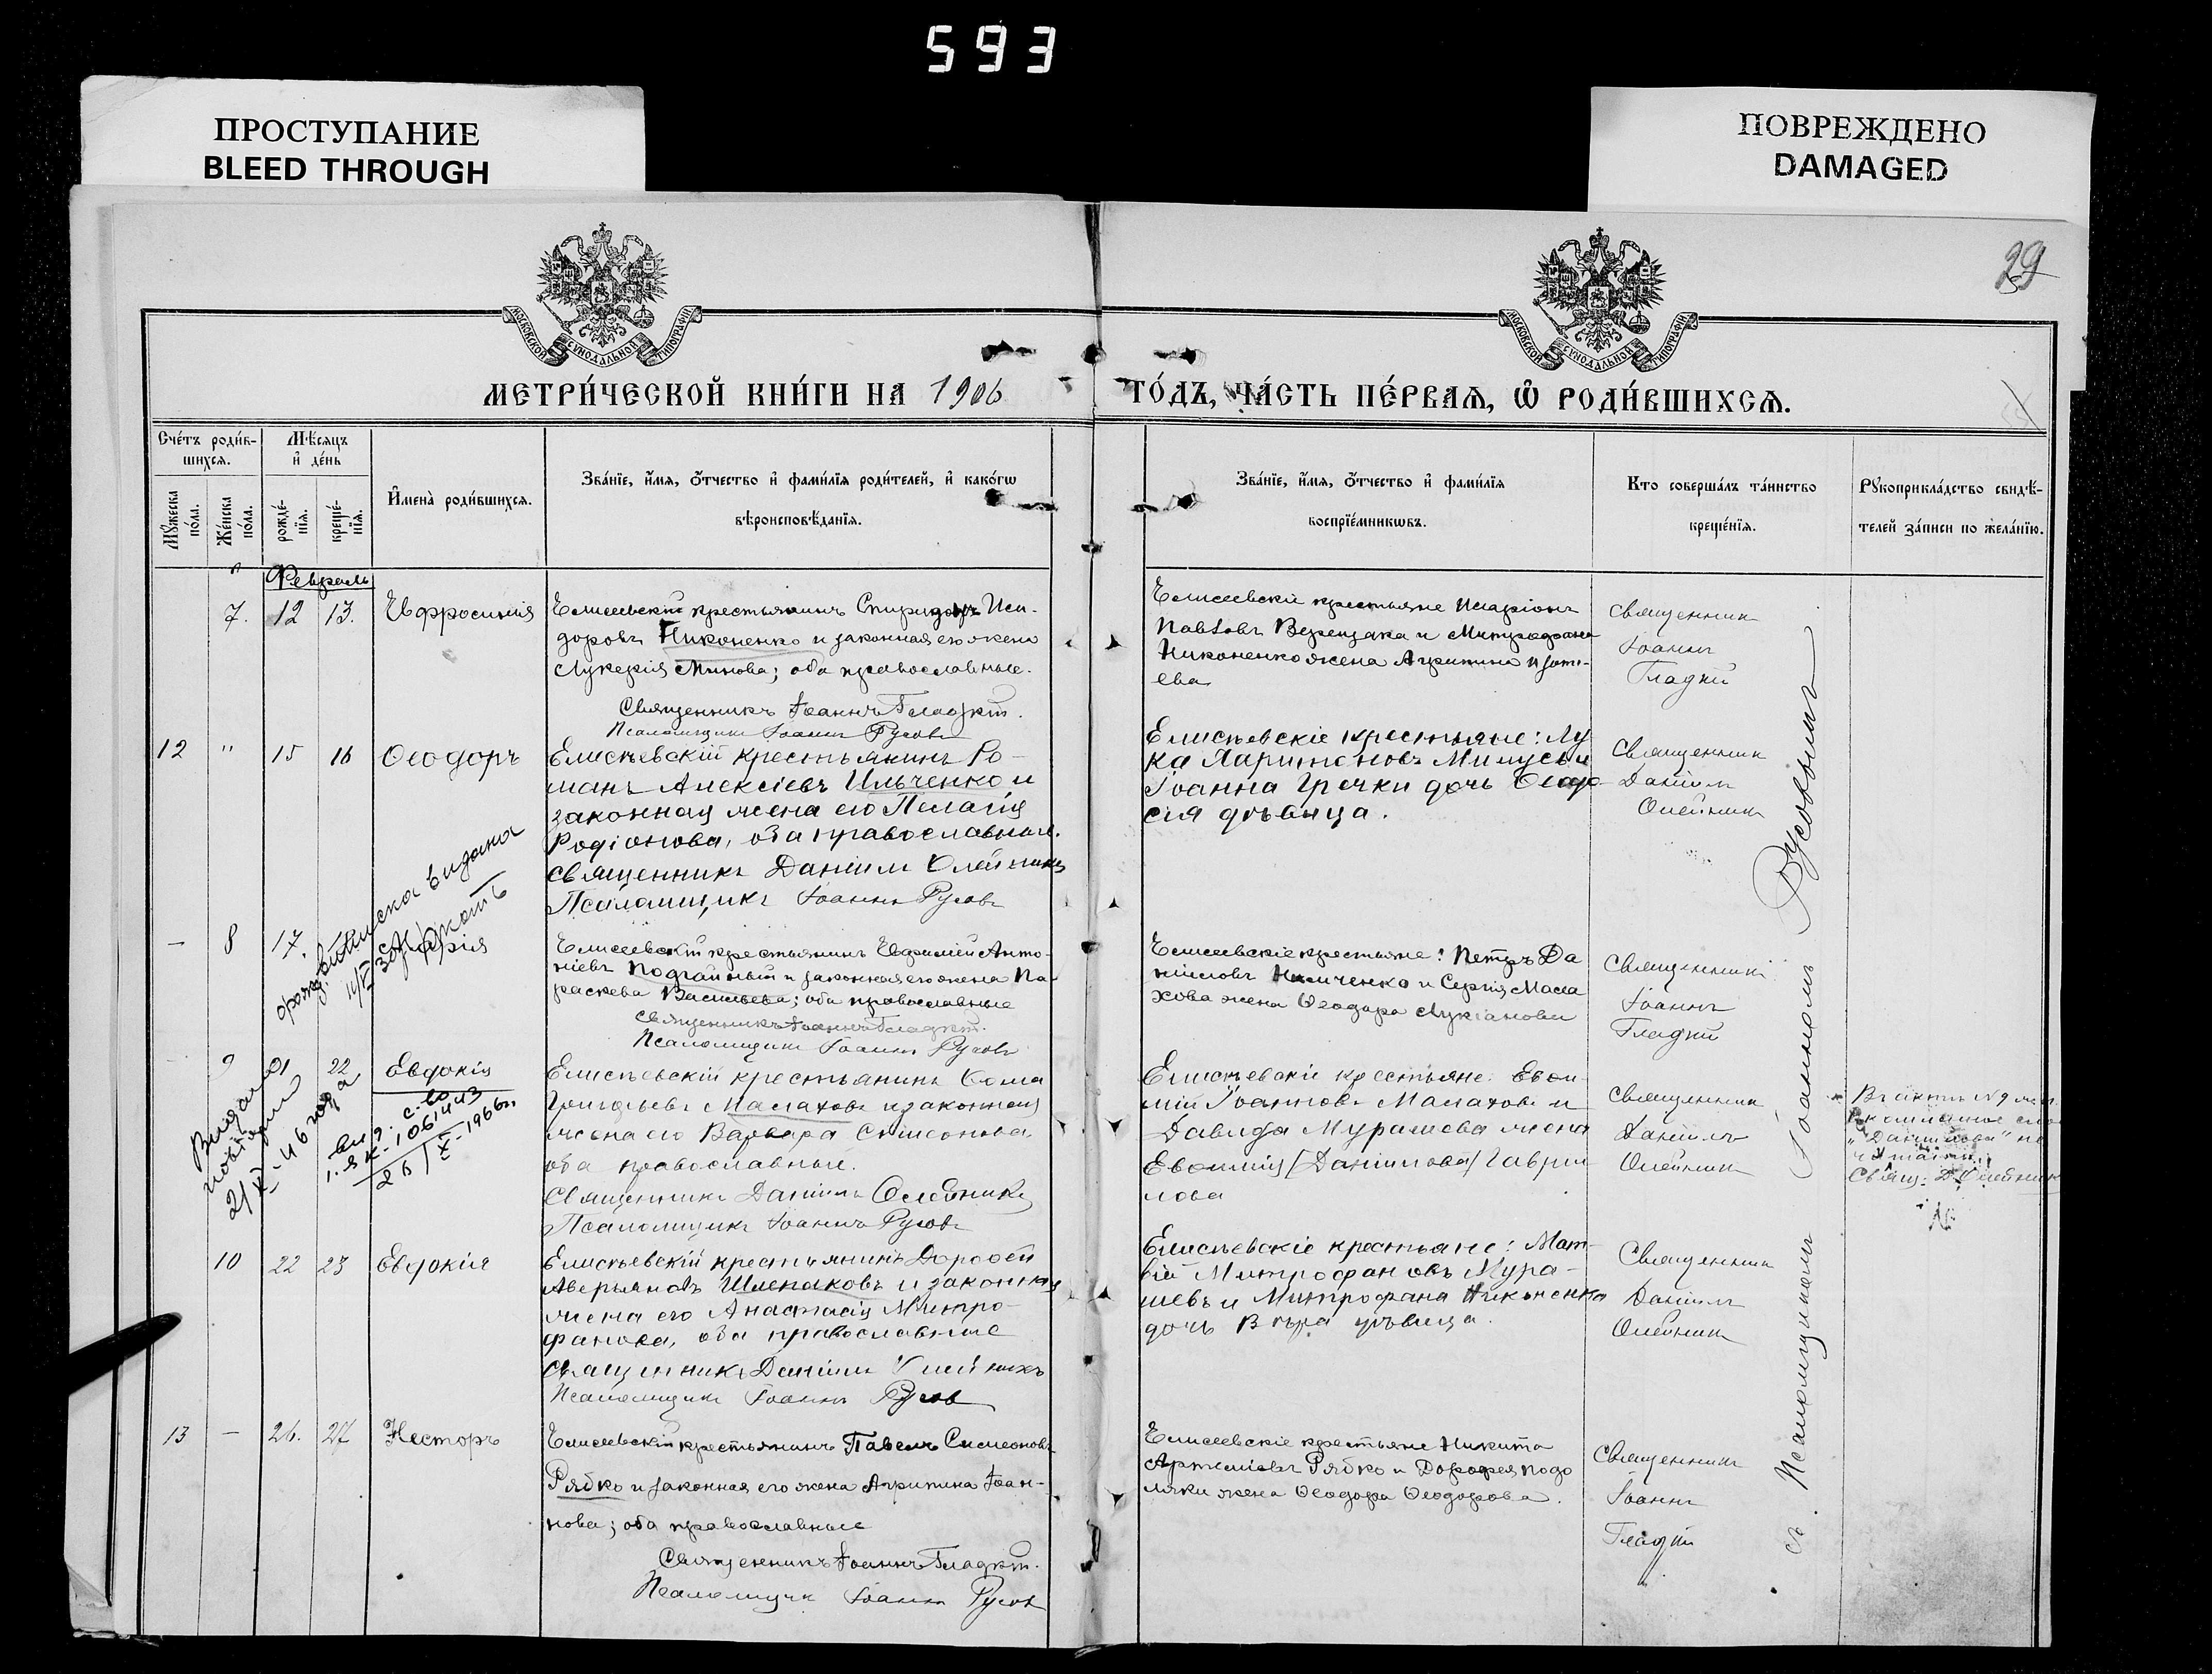 593
ПРОСТУПАНИЕ
BLEED THROUGH
ПОВРЕЖДЕНО
DAMAGED
29
МОСКОВСКОЙ СѴНОДАЛЬНОЙ ТИПОГРАФІИ
МОСКОВСКОЙ СѴНОДАЛЬНОЙ ТИПОГРАФІИ
МЕТРИ́ЧЕСКОЙ КНИ́ГИ НА 1906 ГО́ДЪ, ЧА́СТЬ ПЕ́РВАѦ, Ѡ РОДИ́ВШИХСѦ.
Сче́тъ роди́в-
шихсѧ.
Мѣ́сѧцъ
и҆ де́нь
Мꙋ́жеска
по́ла.
Же́нска
по́ла.
рожде́-
нїѧ.
креще́-
нїѧ.
И҆мена̀ роди́вшихсѧ.
Зва́нїе, и҆́мѧ, ѻ҆́тчество и҆ фами́лїѧ роди́телей, и҆ како́гѡ
вѣроисповѣ́данїѧ.
Зва́нїе, и҆́мѧ, ѻ҆́тчество и҆ фами́лїѧ
воспрїе́мникѡвъ.
Кто соверша́лъ та́инство
креще́нїѧ.
Рꙋкоприкла́дство свидѣ́-
телей за́писи по жела́нїю.
Февраль
7. 12 13. Евфросинія
Елисеевскій крестьянинъ Спиридонъ Иси-
доровъ Никоненко и законная его жена
Лукерія Минова; оба православные.
Священникъ Іоаннъ Гладкій.
Псаломщикъ Іоаннъ Русовъ
Елисеевскіе крестьяне Иларіонъ
Павловъ Верещака и Митрофана
Никоненко жена Агрипина
ева
Священникъ
Іоаннъ
Гладкій
12 " 15 16 Ѳеодоръ
Елисѣевскій крестьянинъ Ро-
манъ Алексіевъ Ильченко и
законная жена его Пелагія
Родіонова, оба православные.
Священникъ Даніилъ Олейникъ
Псаломщикъ Іоаннъ Русовъ
Елисѣевскіе крестьяне: Лу-
ка Харитоновъ Милусь и
Іоанна Гречки дочь Ѳеодо-
сія дѣвица.
Священникъ
Даніилъ
Олейникъ
- 8 17.
Елисеевскій крестьянинъ Евфимій Анто-
ніевъ Подгайный и законная его жена Па-
раскева Васильева; оба православные
Священникъ Іоаннъ Гладкій.
Псаломщикъ Іоаннъ Русовъ
Елисеевскіе крестьяне: Петръ Да
ніиловъ и Сергія Мала
хова жена Ѳеодора Лукіанова
Священникъ
Іоаннъ
Гладкій
9 21 22 Евдокія
Елисѣевскій крестьянинъ Ѳома
Григорьевъ Малаховъ и законная
жена его Варвара Симеонова,
оба православные.
Священникъ Даніилъ Олейникъ
Псаломщикъ Іоаннъ Русовъ
Елисѣевскіе крестьяне: Евѳи-
мій Іоанновъ Малаховъ и
Давида Мурашева жена
Евѳимія (Даніилова) Гаврии
лова
Священникъ
Даніилъ
Олейникъ
"Даниилова" не
читать.
Свящ. Д. Олейникъ
10 22 23 Евдокія
Елисѣевскій крестьянинъ Дороѳей
Аверьяновъ Шлепаковъ и законная
жена его Анастасія Митро-
фанова, оба православные
Священникъ Даніилъ Олейникъ
Псаломщикъ Іоаннъ Русовъ
Елисѣевскіе крестьяне: Мат-
вій Митрофановъ Мура-
шевъ и Митрофана Никоненко
дочь Вѣра дѣвица.
Священникъ
Даніилъ
Олейникъ
13 - 26. 27 Несторъ
Елисеевскій крестьянинъ Павелъ Симеоновъ
Рябко и законная его жена Агрипина Іоан-
нова; оба православные
Священникъ Іоаннъ Гладкій.
Псаломщикъ Іоаннъ Русовъ
Елисеевскіе крестьяне Никита
Артеміевъ Рябко и Дорофея Подо
ляки жена Ѳеодора Ѳеодорова.
Священникъ
Іоаннъ
Гладкій
съ Псаломщикомъ Іоанномъ Русовымъ